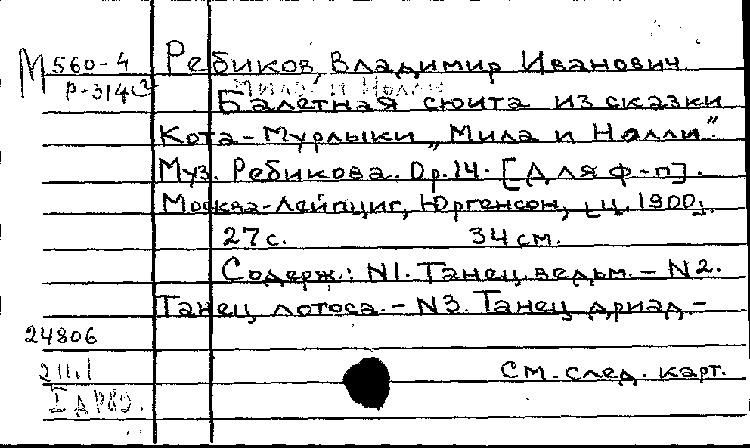 М 560-4 Ребиков, Владимир Иванович.
Р-314 Мила и Нолли
Балетная сюита из сказки
Кота-Мурлыки „Мила и Нолли".
Муз. Ребикова. Op. 14. [Для ф-п].
Москва-Лейпциг, Юргенсон, ц. 1900
27 с. 34 см.
Содерж.: N1. Танец ведьм. – N2.
Танец лотоса. – N3. Танец дриад. –
24806
См. след. карт.